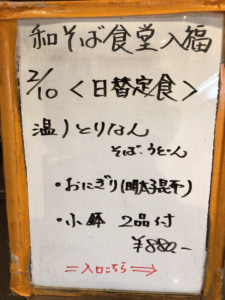 和そば食堂 入福
2/10 <日替定食>
温)とりなん
そば・うどん
・おにぎり(明太子昆布)
・小鉢 2品付
¥880-
=入口こちら⇒